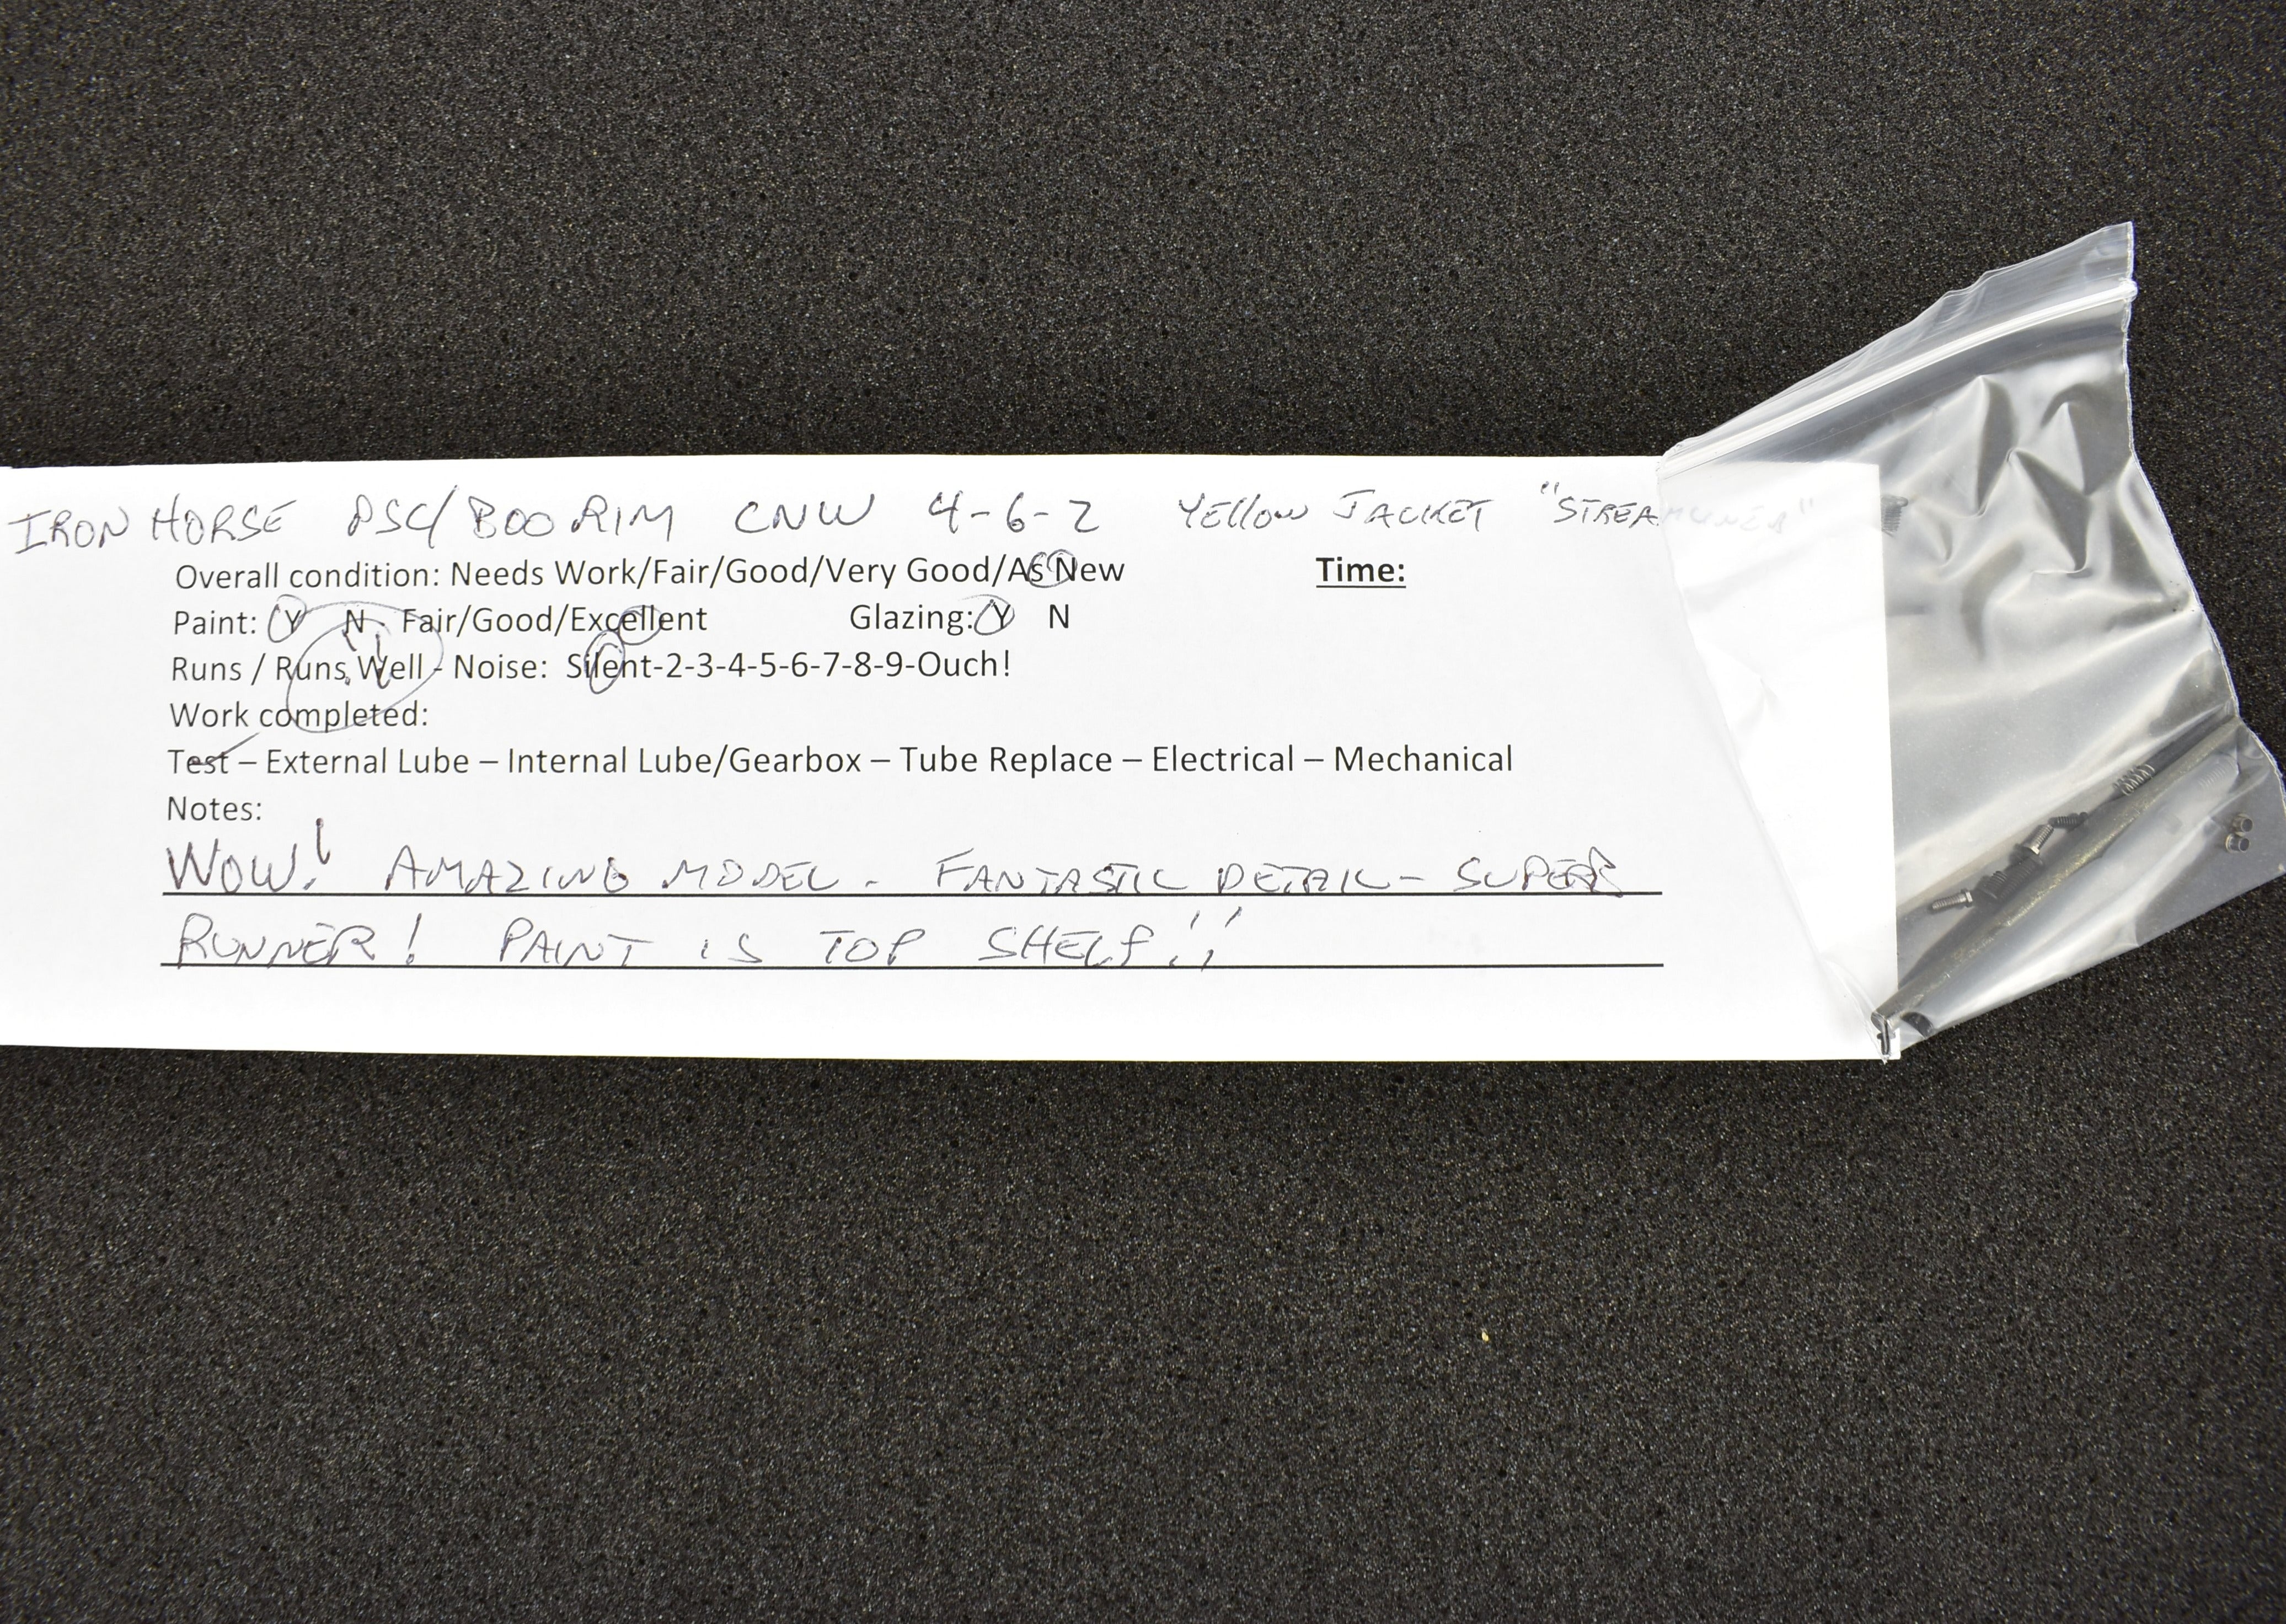 IRON HORSE PSC/BOO RIM CNW 4-6-2 YELLOW JACKET "STREAMLINER"
Overall condition: Needs Work/Fair/Good/Very Good/As New Time:
Paint: Y N - Fair/Good/Excellent Glazing: Y N
Runs / Runs Well - Noise: Silent-2-3-4-5-6-7-8-9-Ouch!
Work completed:
Test – External Lube – Internal Lube/Gearbox – Tube Replace – Electrical – Mechanical
Notes:
WOW! AMAZING MODEL. FANTASTIC DETAIL - SUPER
RUNNER! PAINT IS TOP SHELF!!